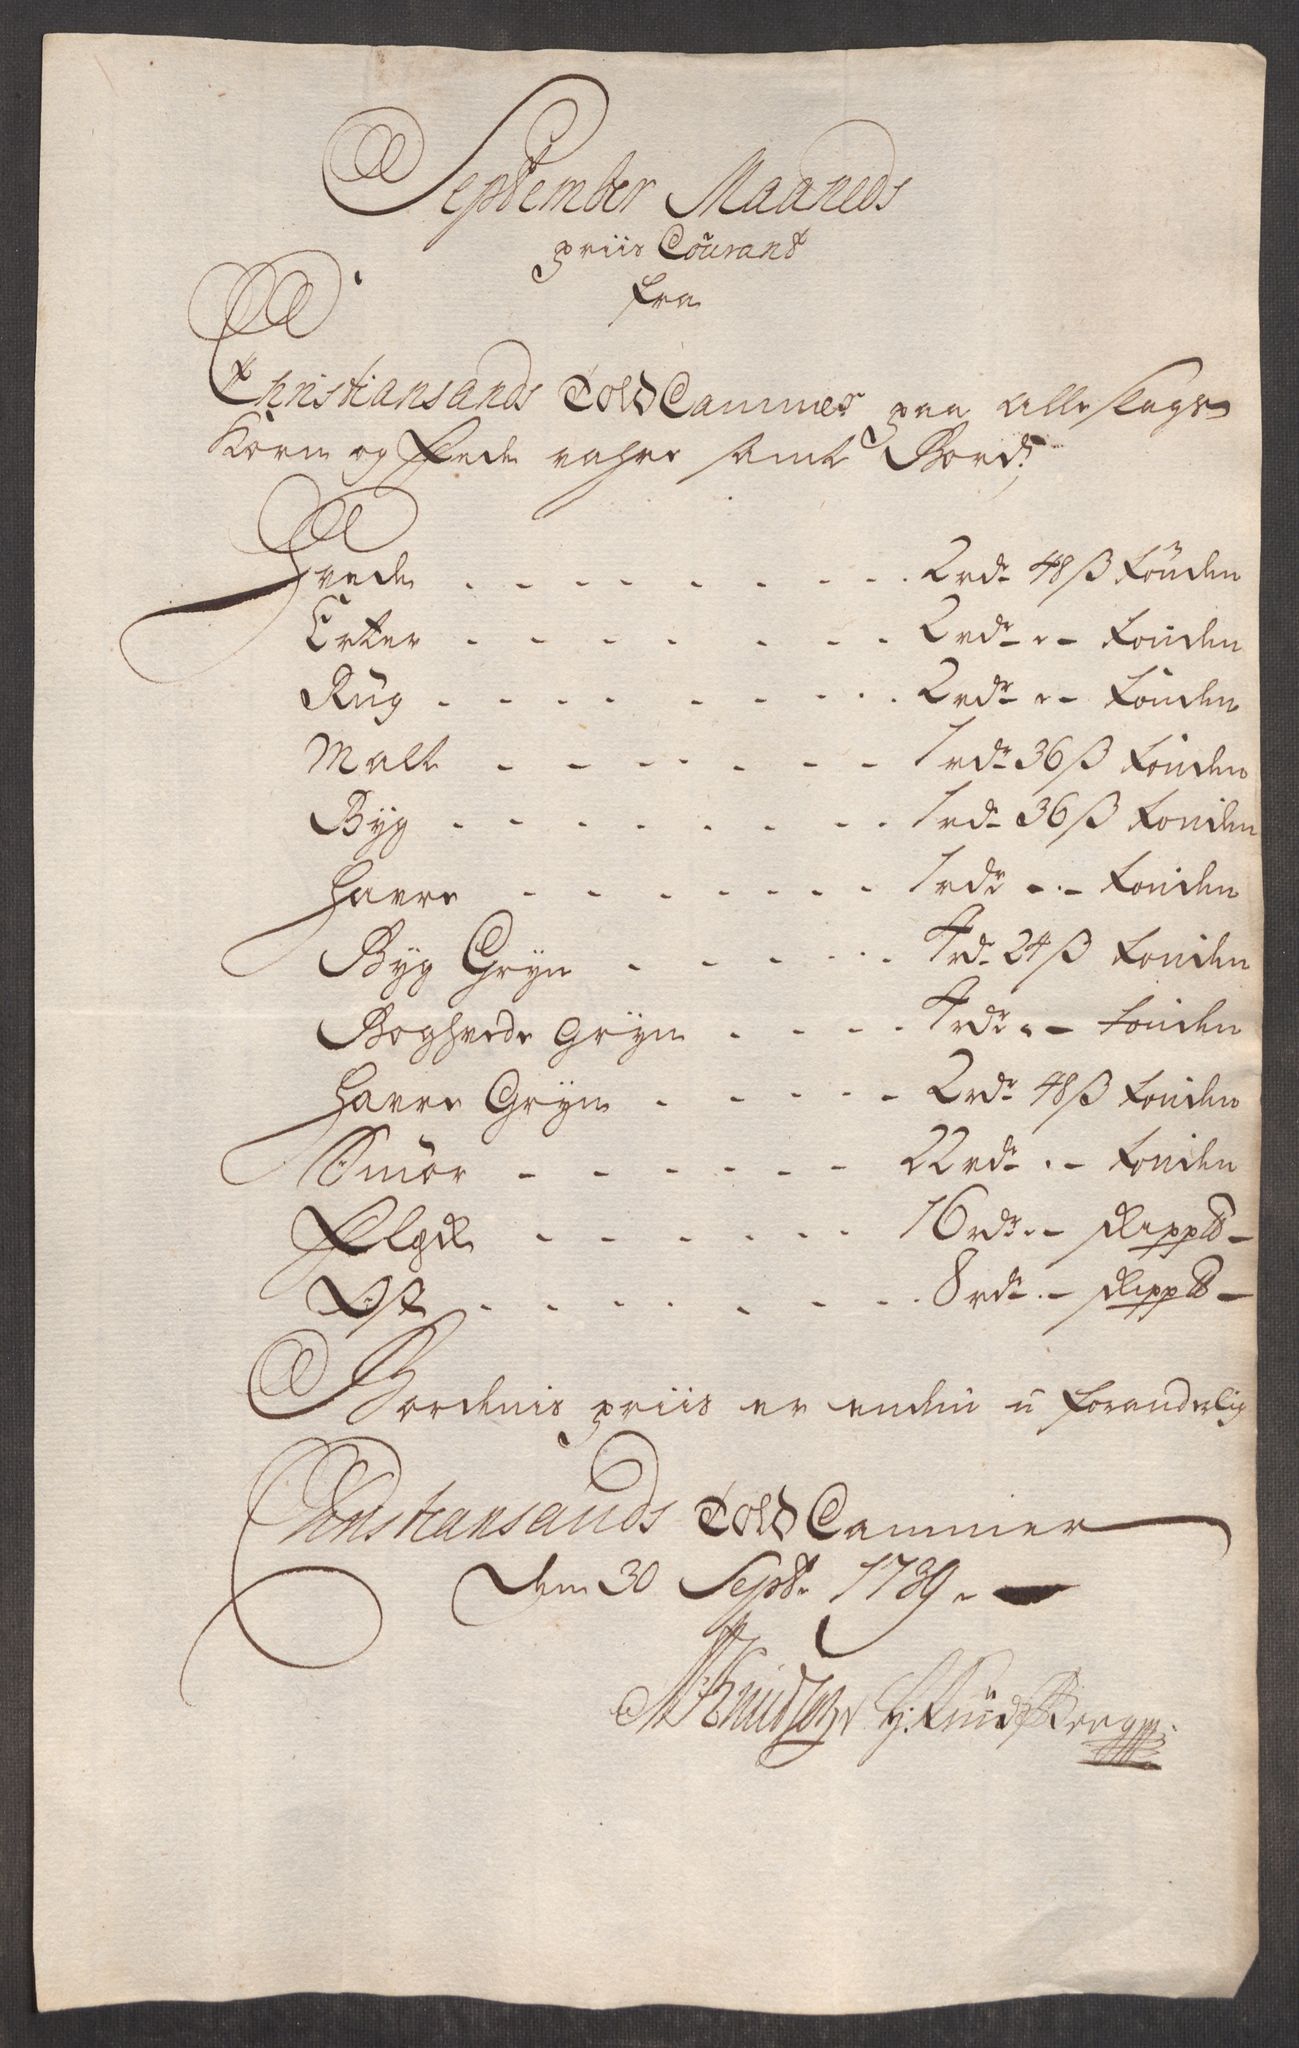 September Maaneds
priis Courant
fra
Christiansands Told Cammer paa alle slags
Korn og Fede vahre samt Bord:
Hvede - - - - - - - - 2 rdr 48 ß tønden
Erter - - - - - - - - 2 rdr - - tønden
Rüg - - - - - - - - 2 rdr - - tønden
Malt - - - - - - - 1 rdr 36 ß tønden
Byg - - - - - - - - 1 rd 36 ß tønden
Havre - - - - - - - 1 rdr - - tønden
Byg Gryn - - - - - 4 rd 24 ß tønden
Boghvede gryn - - - - 4 rdr - - tønden
Havre Gryn - - - - - 2 rdr 48 ß tønden
Smör - - - - - - 22 rdr - - tønden
Flesk - - - - - - 16 rdr - - Skipp℔ -
Ost - - - - - - - - 8 rdr - - Skipp℔ -
Bordenis priis er endnu u foranderlig
Christiansands Told Cammer
den 30 Sept: 1739 -